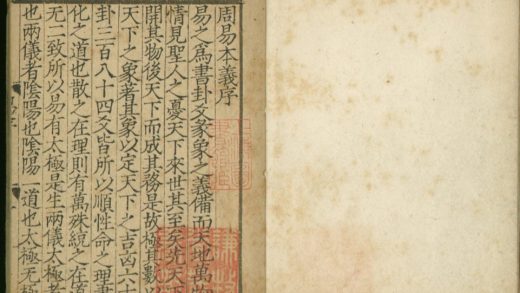 周易本義序
易之爲書卦爻彖象之義備而天地萬物
情見聖人之憂天下來世其至矣先天下
開其物後天下而成其務是故極其數以
天下之象著其象以定天下之吉凶六十
卦三百八十四爻皆所以順性命之理盡
化之道也散之在理則有萬殊統之在道
无二致所以易有太極是生兩儀太極者
也兩儀者陰陽也陰陽一道也太極无極